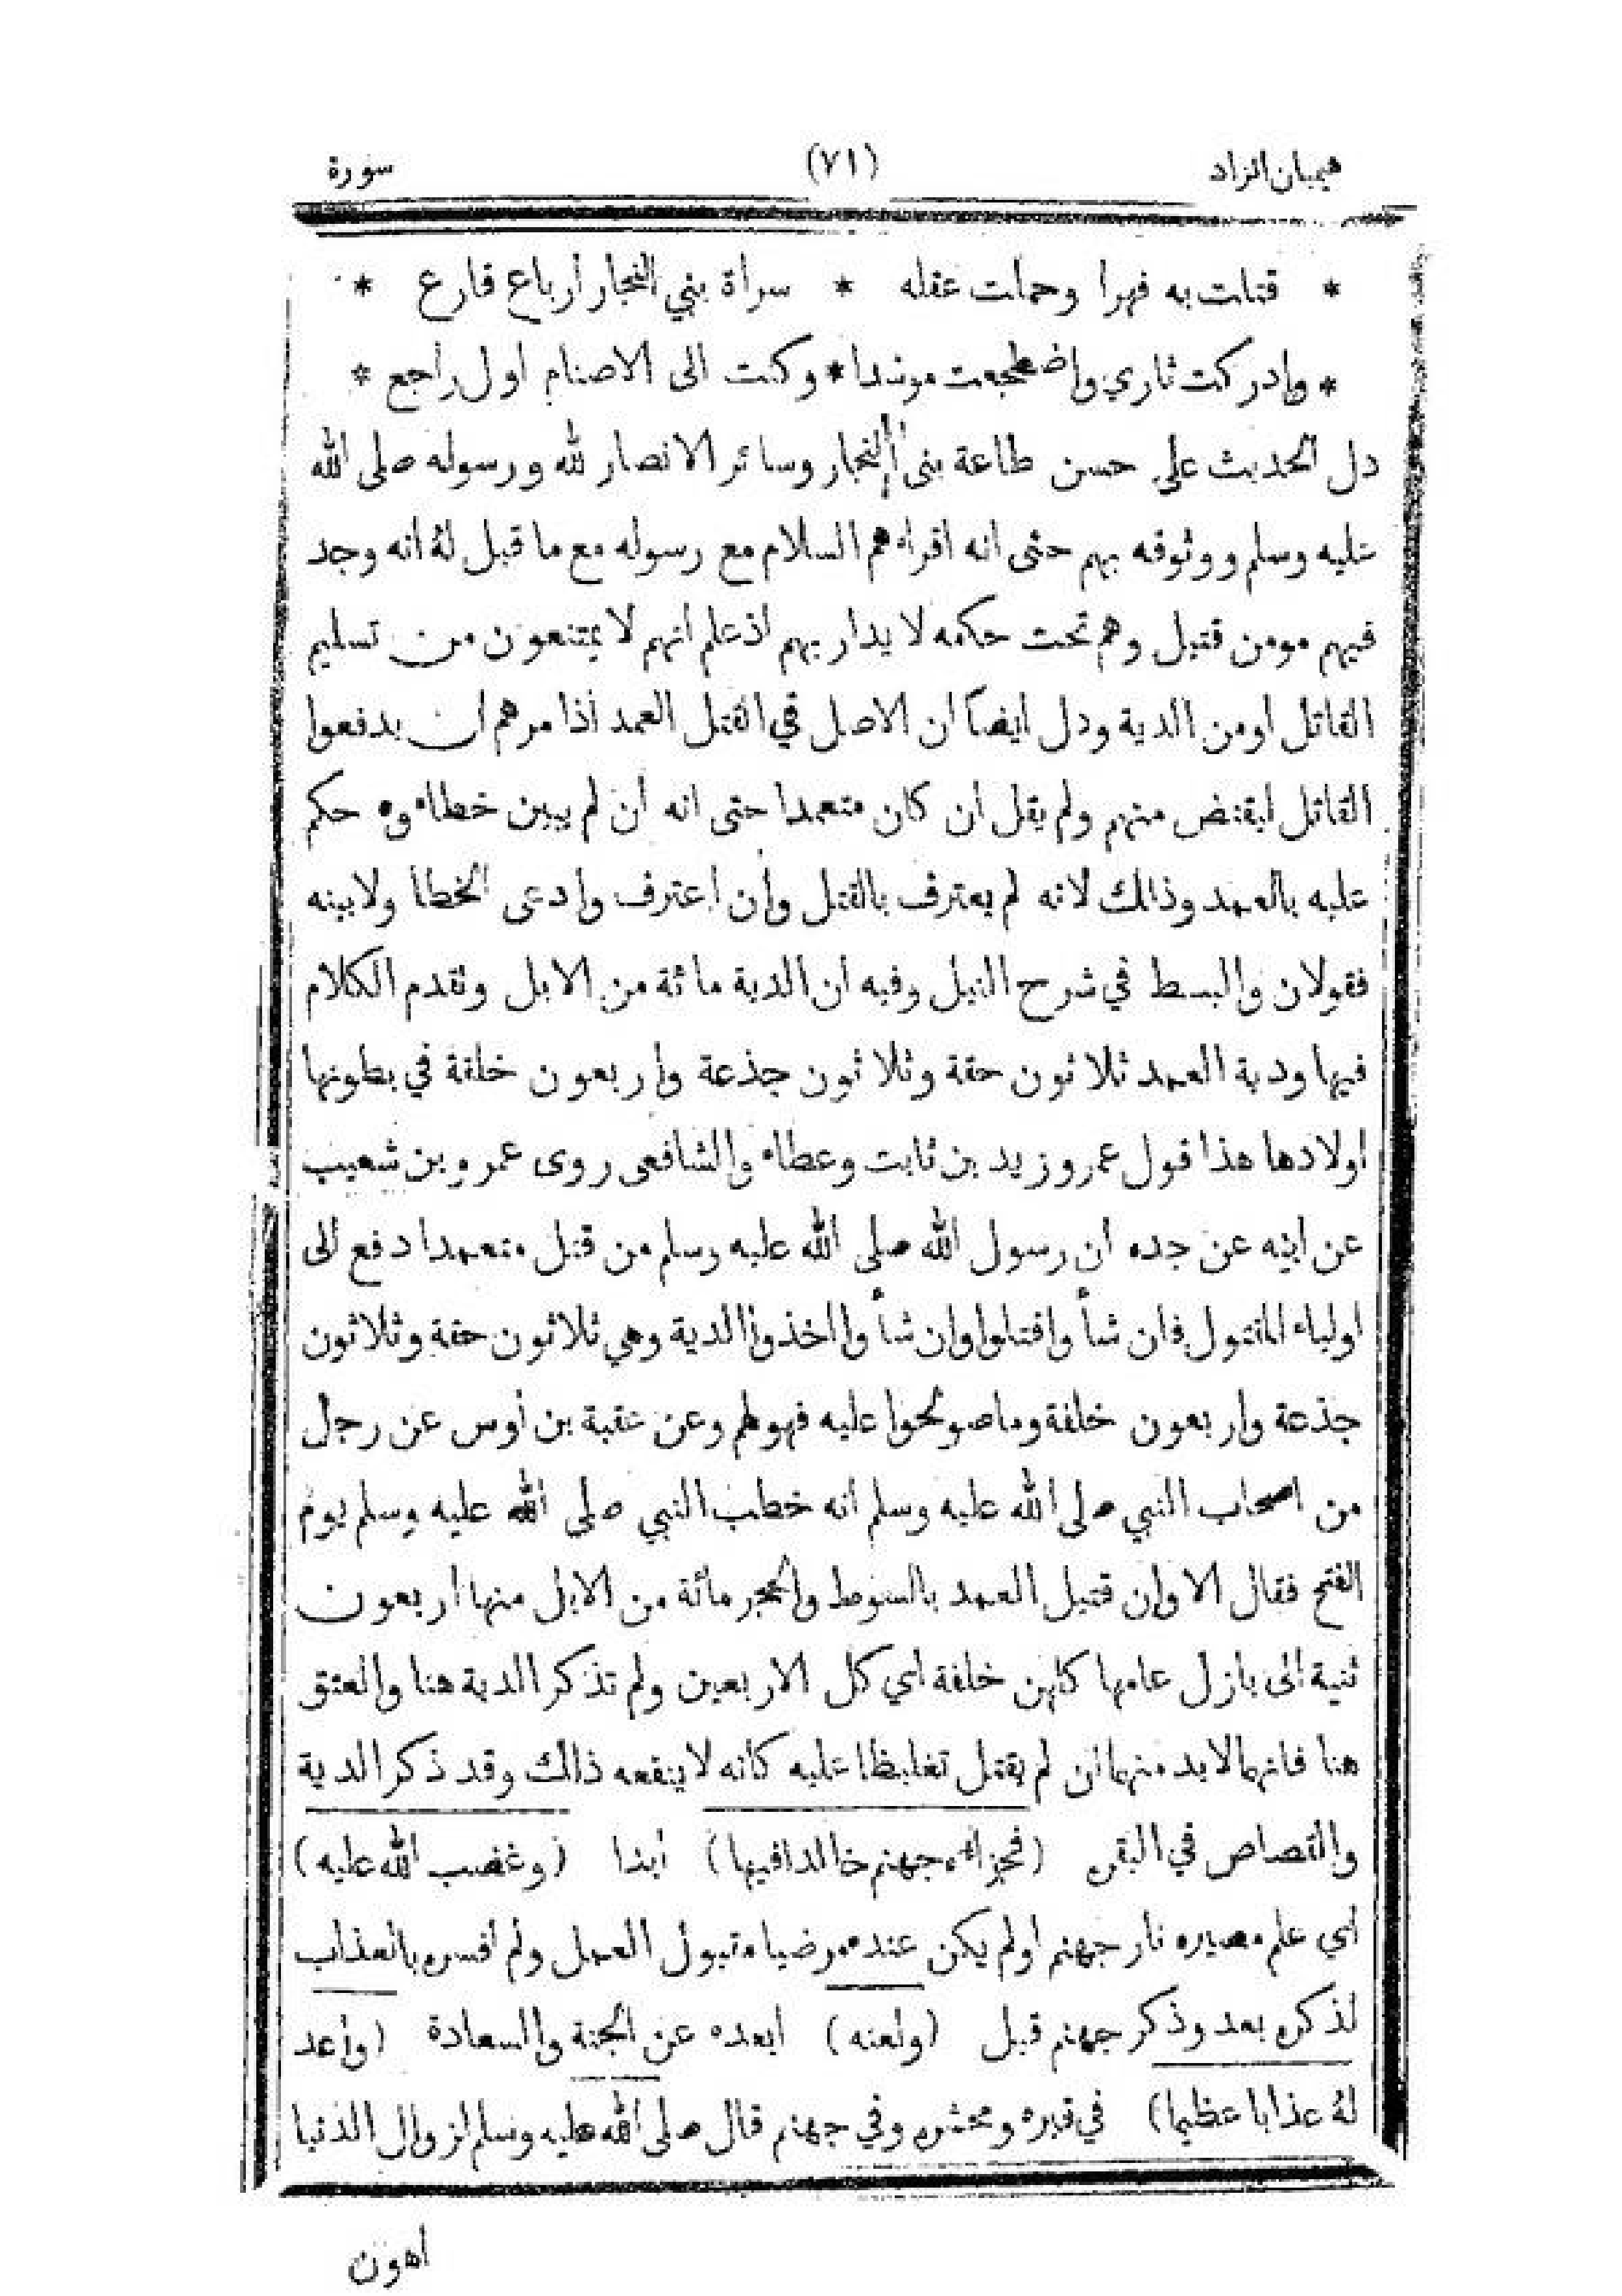 هيميان الزاد (٧١) سورة
* قتلت به فهرا وحملت عقله * سراة بني النجار أرباع قارع *
* وادركت ثاري واضطجعت موسدا * وكنت الى الاصنام اول راجع *
دل الحديث على حسن طاعة بنى النجار وسائر الانصار لله ورسوله صلى الله
عليه وسلم ووثوقه بهم حتى انه اقراءهم السلام مع رسوله مع ما قيل له انه وجد
فيهم مومن قتيل وهم تحت حكمه لا يدار بهم اذ علم انهم لا يمتنعون من تسليم
القاتل اومن الدية ودل ايضا ان الاصل في القتل العمد اذا مرهم ان يدفعوا
القاتل ليقتض منهم ولم يقل ان كان متعمدا حتى انه ان لم يبين خطاءوه حكم
عليه بالعمد وذالك لانه لم يعترف بالقتل وان اعترف وادعى الخطا ولابينه
فقولان والبسط في شرح النيل وفيه ان الدية مائة من الابل وتقدم الكلام
فيها ودية العمد ثلاثون حقة وثلاثون جذعة واربعون خلفة في بطونها
اولادها هذا قول عمر وزيد بن ثابت وعطاء والشافعى روى عمرو بن شعيب
عن ابيه عن جده ان رسول الله صلى الله عليه وسلم من قتل متعمدا دفع الى
اولياء المقتول فان شأ وافتلوا وان شأ وااخذوا الدية وهي ثلاثون حقة وثلاثون
جذعة واربعون خلفة وماصولحوا عليه فهولهم وعن عقبة بن أوس عن رجل
من اصحاب النبي صلى الله عليه وسلم انه خطب النبي صلى الله عليه وسلم يوم
الفتح فقال الا وان قتيل العمد بالسوط والحجر مائة من الابل منها اربعون
ثنية الى بازل عامها كلهن خلفة اي كل الاربعين ولم تذكر الدية هنا والعتق
هنا فانهما لابد منهما ان لم يقتل تغليظا عليه كانه لا ينفعه ذالك وقد ذكر الدية
والقصاص في البقره (فجزاءه جهنم خالدافيها) أبدا (وغضب الله عليه)
اي علم مصيره نار جهنم اولم يكن عنده مرضيا مقبول العمل ولم افسره بالعذاب
لذكره بعد وذكر جهنم قبل (ولعنه) ابعده عن الجنة والسعادة (وأعد
له عذابا عظيما) في قبره ومحشره وفي جهنم قال صلى الله عليه وسلم لزوال الدنيا
اهون